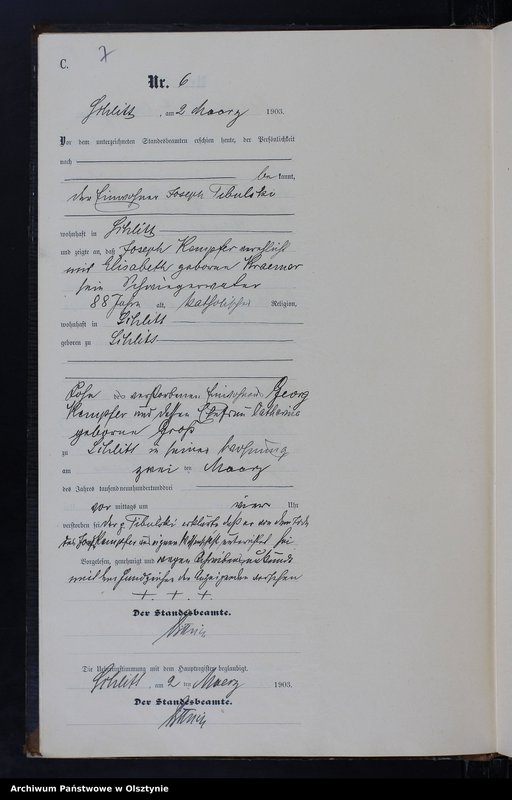 C.
7
Nr. 6
Schlitt, am 2 Maerz 1903.
Vor dem unterzeichneten Standesbeamten erschien heute, der Persönlichkeit
nach
be kannt,
der Einwohner Joseph Tibulski
wohnhaft in Schlitt
und zeigte an, daß Joseph Kempfer verehlicht
mit Elisabeth geborene Kraemer
sein Schwiegervater
88 Jahre alt, katholischer Religion,
wohnhaft in Schlitt
geboren zu Schlitt
Sohn des verstorbenen Einwohners Georg
Kempfer und dessen Ehefrau Catharina
geborene Groß
zu Schlitt in seiner Wohnung
am zwei ten Maerz
des Jahres tausendneunhundertunddrei
vor mittags um vier Uhr
verstorben sei. Der p Tibulski erklärte daß er von dem Tode
des Kempfer aus eigener Wissenschaft unterrichtet sei
Vorgelesen, genehmigt und wegen Schreibensunkunde
mit den Handzeichen des Anzeigenden versehen
+ . + . +
Der Standesbeamte.
Die Uebereinstimmung mit dem Hauptregister beglaubigt.
Schlitt, am 2 ten Maerz 1903.
Der Standesbeamte.
Archiwum Państwowe w Olsztynie